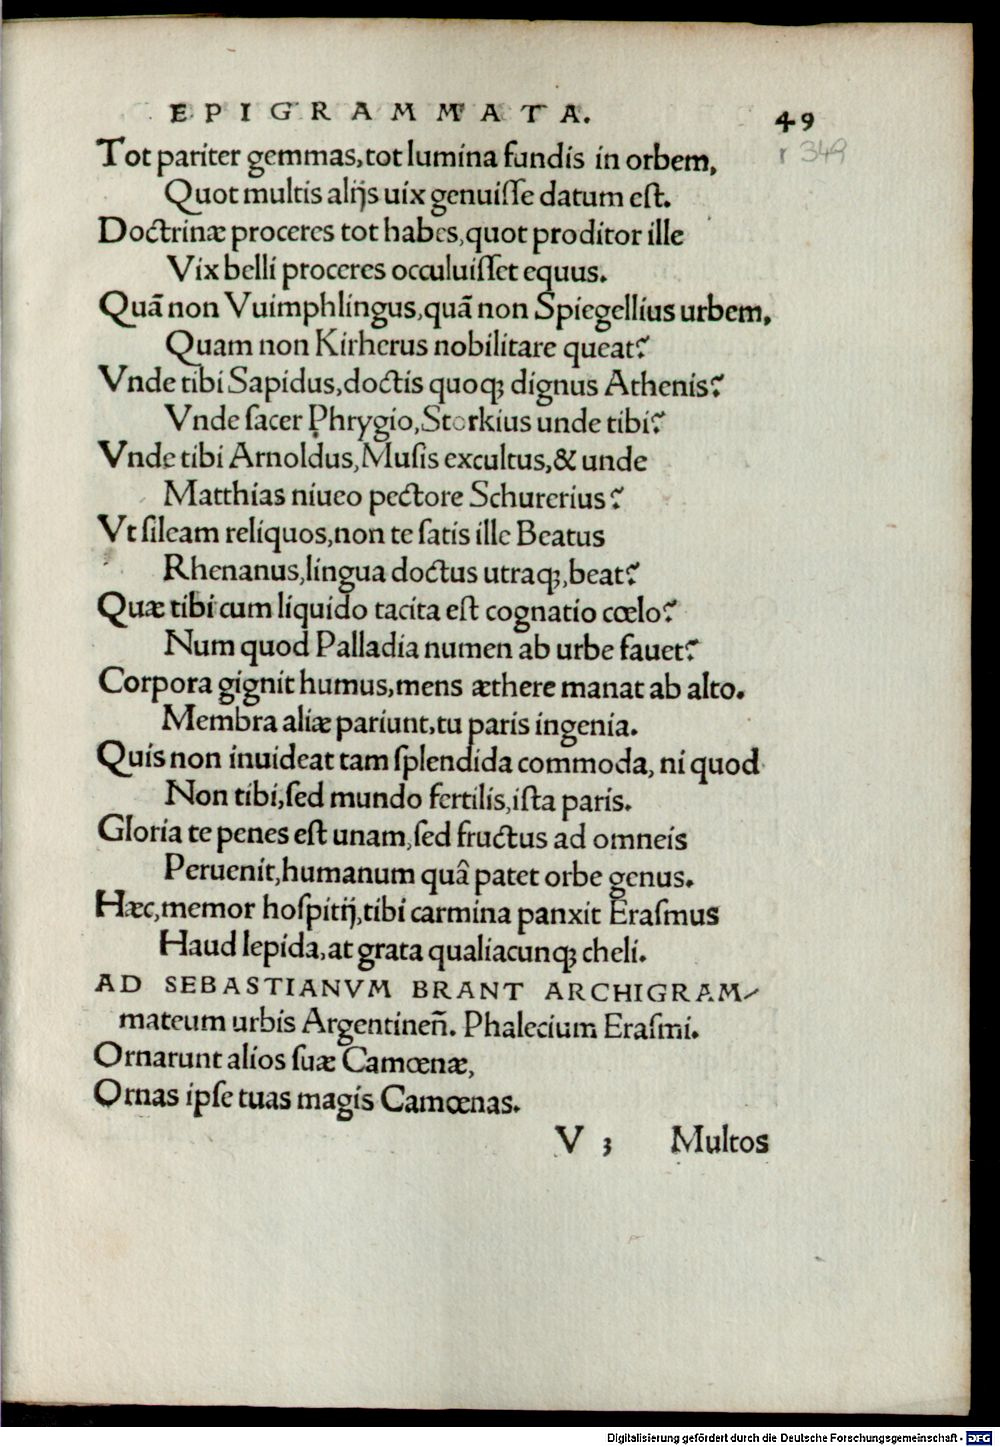 EPIGRAMMATA. 49
r 349
Tot pariter gemmas, tot lumina fundis in orbem,
Quot multis alijs uix genuiſſe datum eſt.
Doctrinæ proceres tot habes, quot proditor ille
Vix belli proceres occuluiſſet equus.
Quã non Vuimphlingus, quã non Spiegellius urbem,
Quam non Kirherus nobilitare queat?
Vnde tibi Sapidus, doctis quoqꝫ dignus Athenis?
Vnde ſacer Phrygio, Storkius unde tibi?
Vnde tibi Arnoldus, Muſis excultus, & unde
Matthias niueo pectore Schurerius?
Vt ſileam reliquos, non te ſatis ille Beatus
Rhenanus, lingua doctus utraqꝫ, beat?
Quæ tibi cum liquido tacita eſt cognatio cœlo?
Num quod Palladia numen ab urbe fauet?
Corpora gignit humus, mens æthere manat ab alto.
Membra aliæ pariunt, tu paris ingenia.
Quis non inuideat tam ſplendida commoda, ni quod
Non tibi, ſed mundo fertilis, iſta paris.
Gloria te penes eſt unam, ſed fructus ad omneis
Peruenit, humanum quâ patet orbe genus.
Hæc, memor hoſpitij, tibi carmina panxit Eraſmus
Haud lepida, at grata qualiacunqꝫ cheli.
AD SEBASTIANVM BRANT ARCHIGRAM-
mateum urbis Argentineñ. Phalecium Eraſmi.
Ornarunt alios ſuæ Camœnæ,
Ornas ipſe tuas magis Camœnas.
V 3 Multos
Digitalisierung gefördert durch die Deutsche Forschungsgemeinschaft - DFG